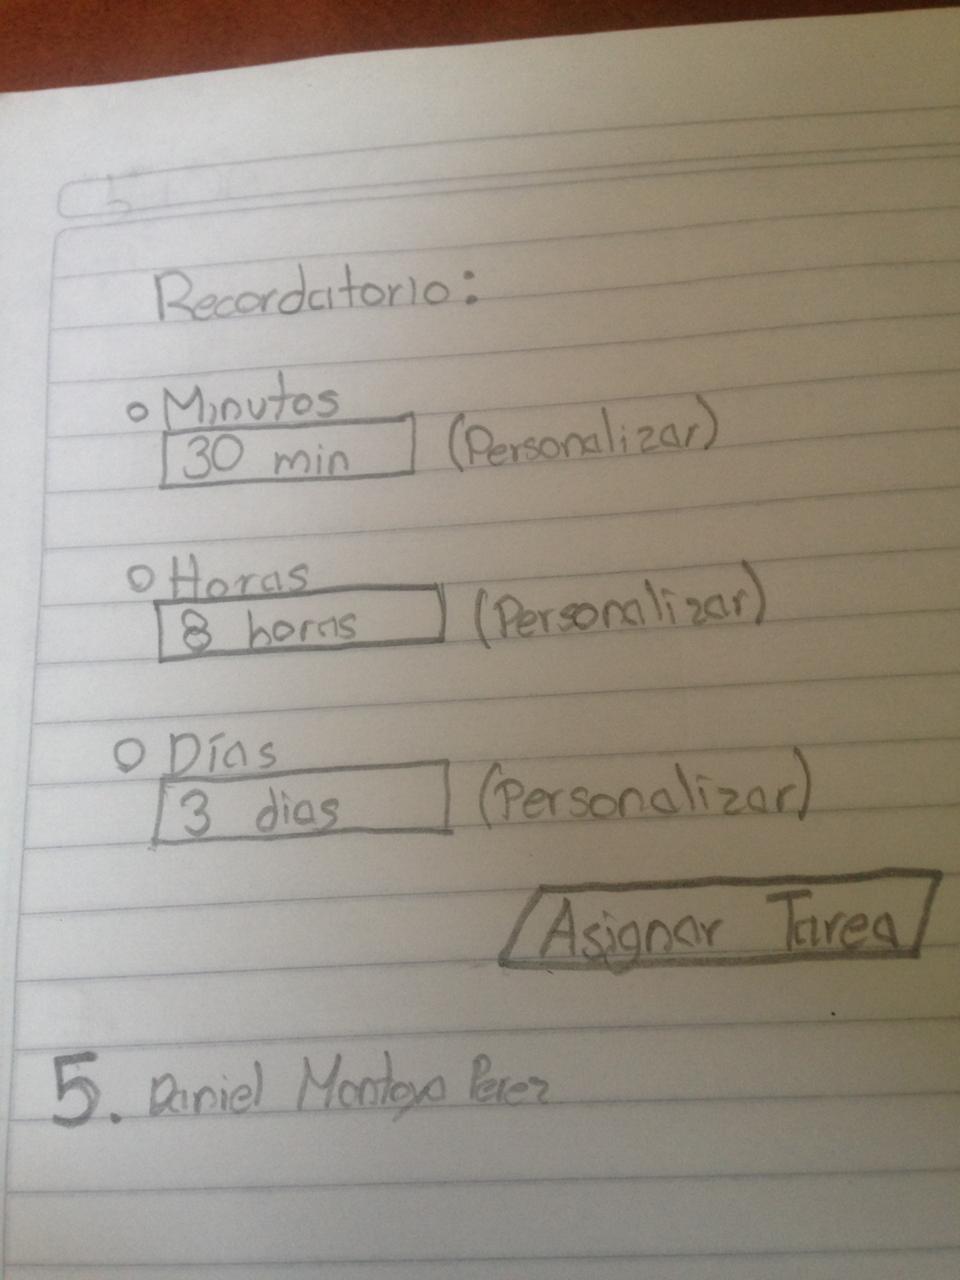 Recordatorio:
Minutos
30 min (Personalizar)
Horas
8 horas (Personalizar)
Días
3 dias (Personalizar)
Asignar Tarea
5. Daniel Montoya Perez